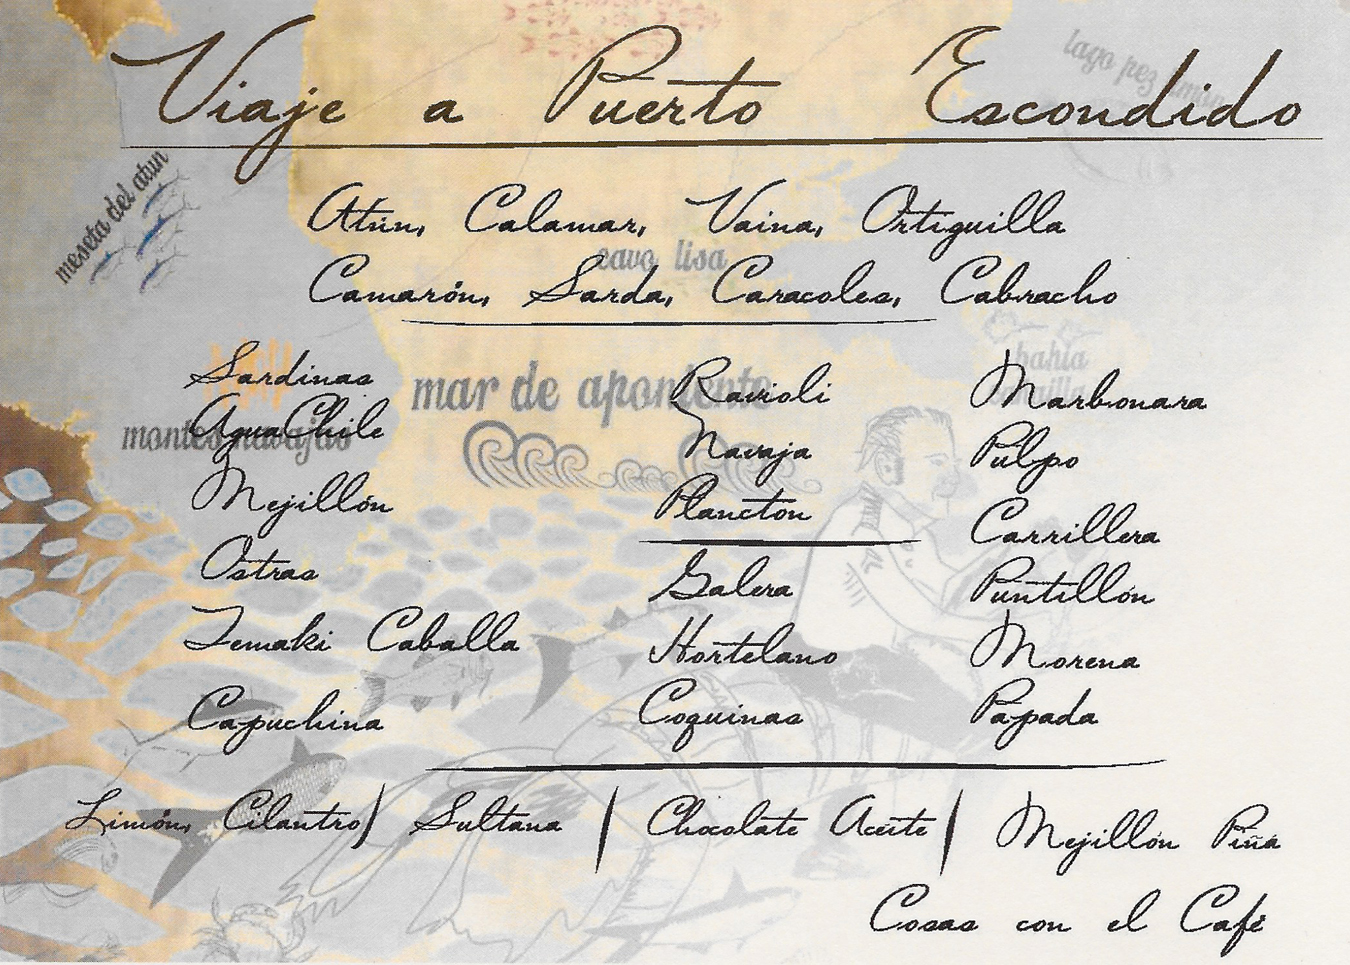 Viaje a Puerto Escondido
lago pez
meseta del atun
Atún, Calamar, Vaina, Ortiguilla
cavo lisa
Camarón, Sarda, Caracoles, Cabracho
bahia
mar de aponiente
montes navajas
Sardinas
AguaChile
Mejillón
Ostras
Temaki Caballa
Capuchina
Ravioli
Navaja
Plancton
Galera
Hortelano
Coquinas
Marbonara
Pulpo
Carrillera
Puntillón
Morena
Papada
Limón, Cilantro/ Sultana / Chocolate Aceite / Mejillón Piñá
Cosas con el Café